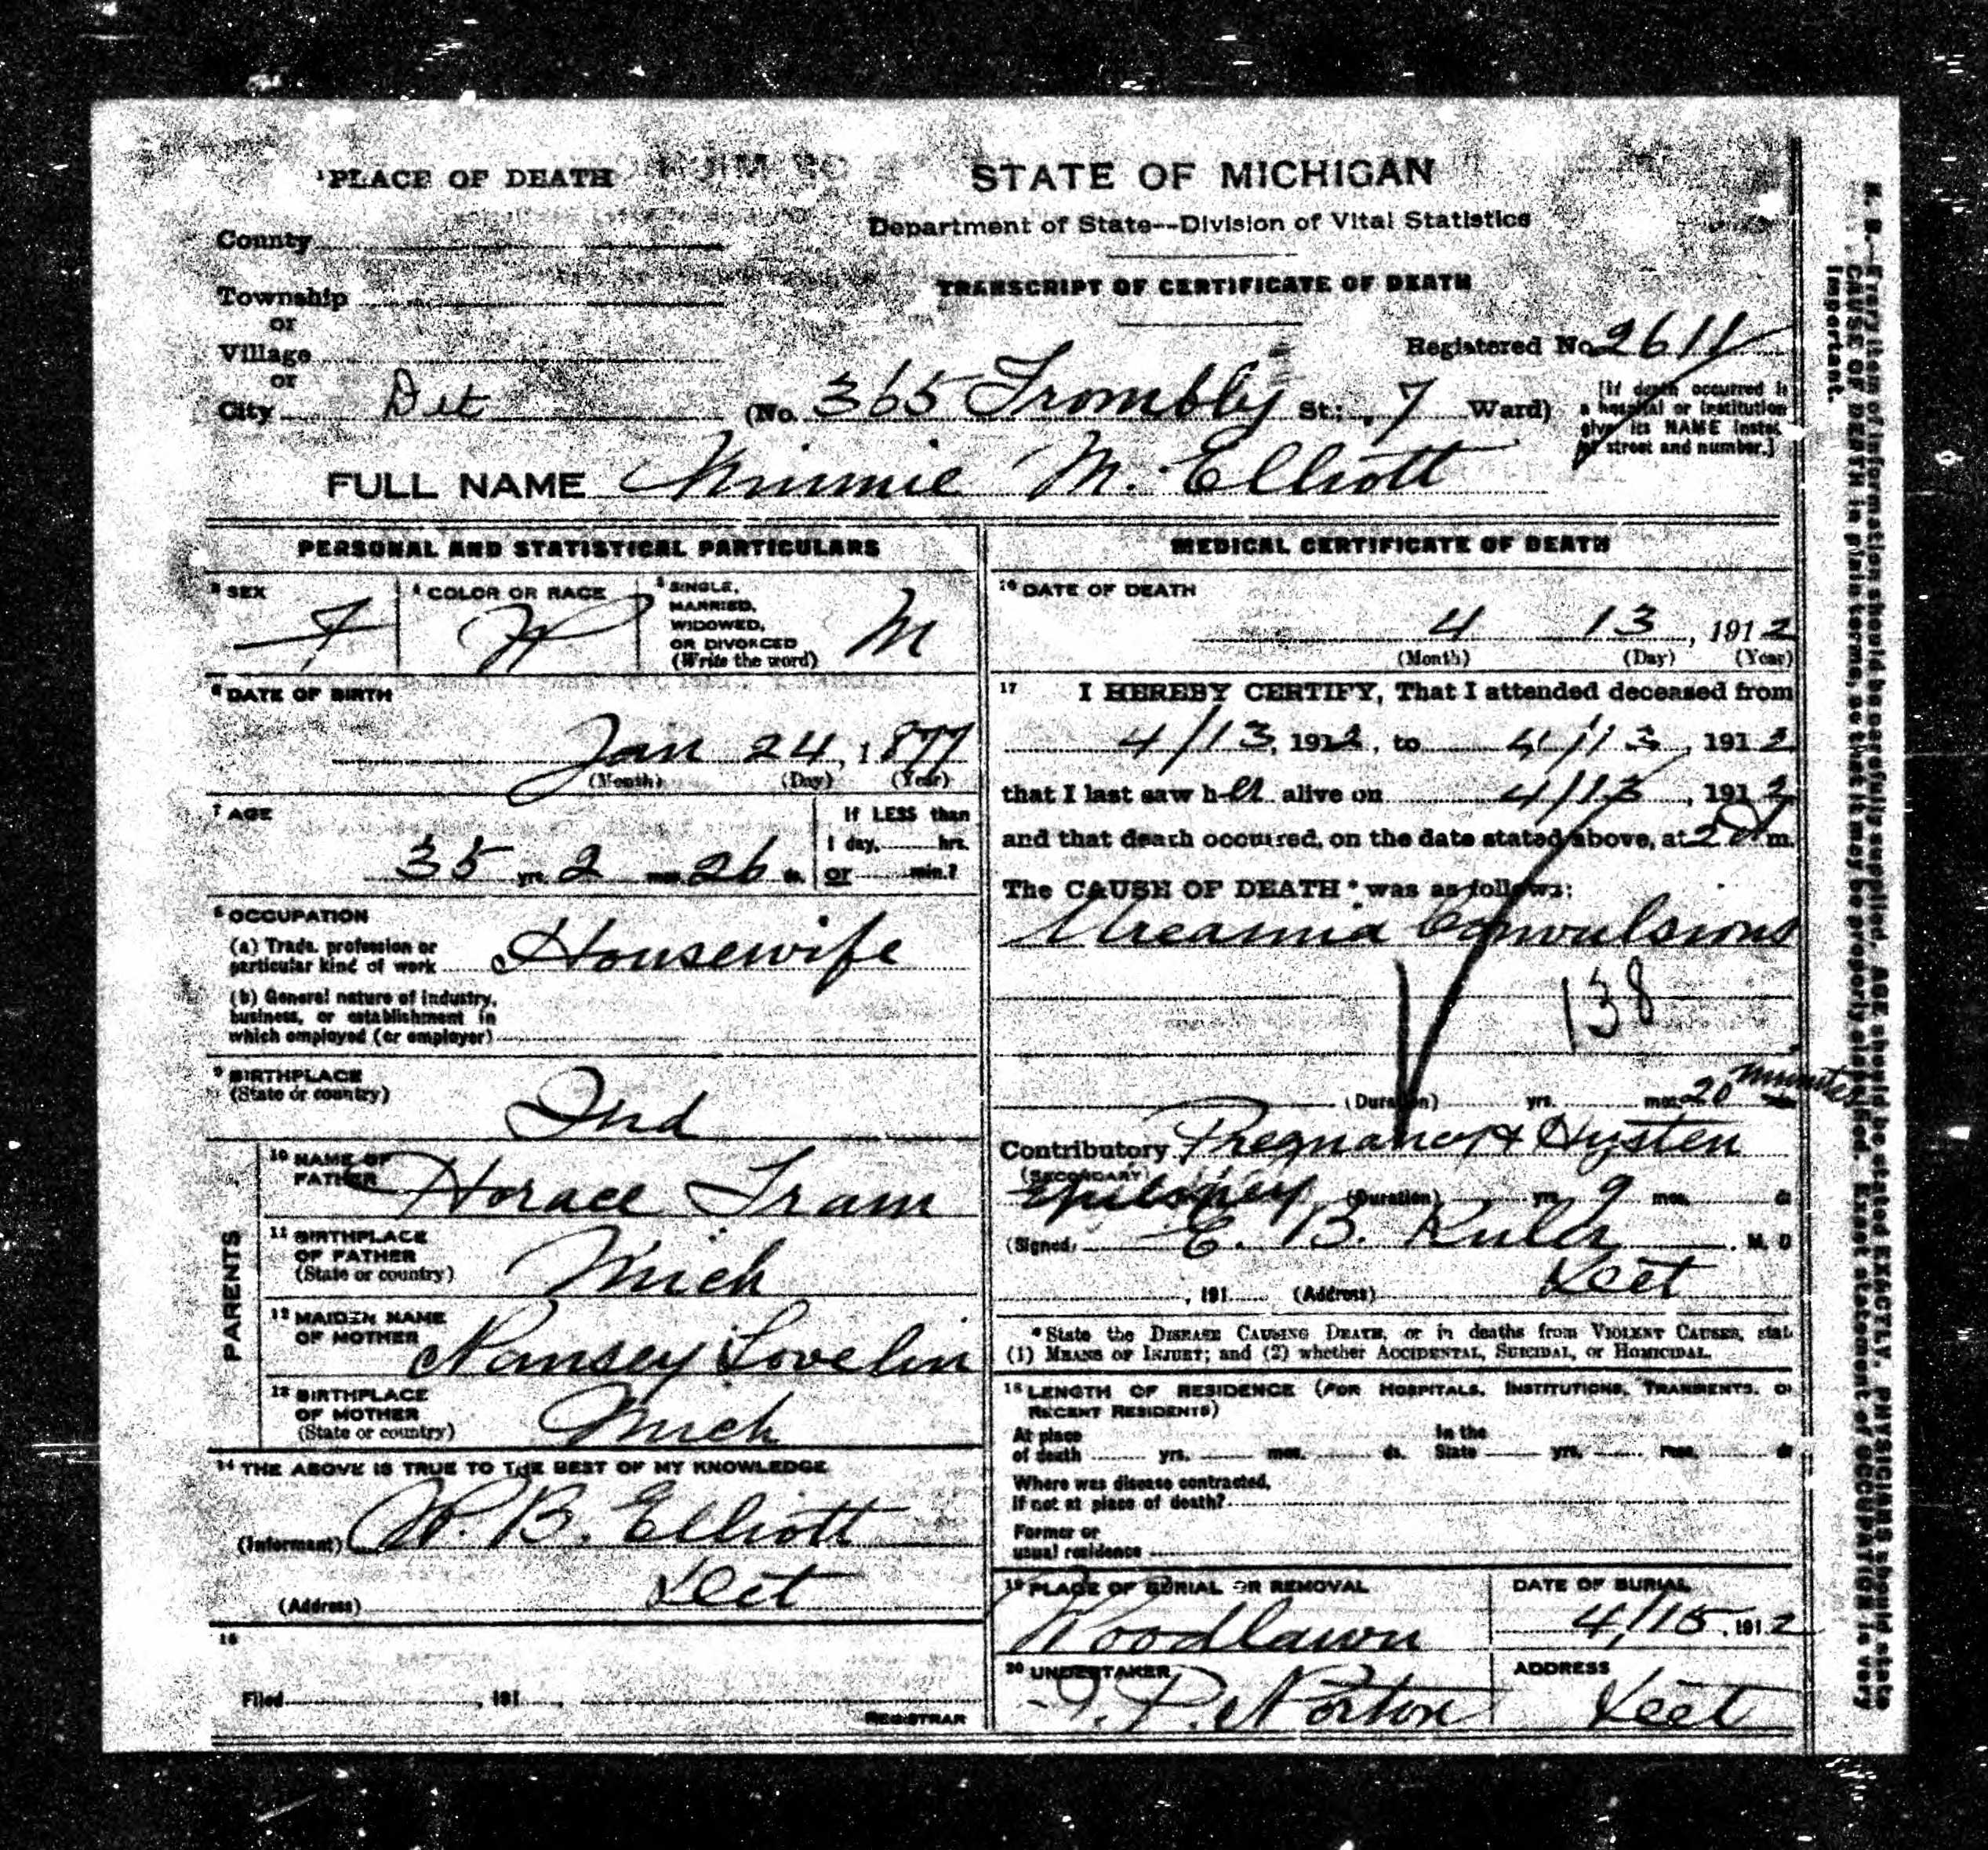 1 PLACE OF DEATH
STATE OF MICHIGAN
Department of State—Division of Vital Statistics
County
TRANSCRIPT OF CERTIFICATE OF DEATH
Township
or
Village
Registered No. 2611
or
City Det (No. 365 Trombly St.; 7 Ward)
[If death occurred i
a hospital or institution
give its NAME instea
of street and number.]
FULL NAME Minnie M. Elliott
PERSONAL AND STATISTICAL PARTICULARS
3 SEX F
4 COLOR OR RACE W
5 SINGLE, MARRIED, WIDOWED, OR DIVORCED (Write the word) M
6 DATE OF BIRTH
Jan 24, 1877
(Month) (Day) (Year)
7 AGE
35 yrs. 2 mos. 26 ds.
If LESS than
1 day, hrs.
or min.?
8 OCCUPATION
(a) Trade, profession or
particular kind of work Housewife
(b) General nature of industry,
business, or establishment in
which employed (or employer)
9 BIRTHPLACE
(State or country)
Ind
PARENTS
10 NAME OF
FATHER Horace Tram
11 BIRTHPLACE
OF FATHER
(State or country) Mich
12 MAIDEN NAME
OF MOTHER Nansey Lovelin
13 BIRTHPLACE
OF MOTHER
(State or country) Mich
14 THE ABOVE IS TRUE TO THE BEST OF MY KNOWLEDGE
(Informant) W. B. Elliott
(Address) Det
15
Filed , 191 ,
REGISTRAR
MEDICAL CERTIFICATE OF DEATH
16 DATE OF DEATH
4 13, 1912
(Month) (Day) (Year)
17 I HEREBY CERTIFY, That I attended deceased from
4/13, 1912, to 4/13, 1912
that I last saw her alive on 4/13, 1912
and that death occurred, on the date stated above, at 2 m.
The CAUSE OF DEATH * was as follows:
Ureamia Convulsions
138
(Duration) yrs. mos. 20 minutes
Contributory Pregnancy & Hysten
(SECONDARY)
Epilepsey (Duration) yrs. 9 mos. ds
(Signed) E. B. M. D
, 191 (Address) Det
* State the DISEASE CAUSING DEATH, or in deaths from VIOLENT CAUSES, stat
(1) MEANS OF INJURY; and (2) whether ACCIDENTAL, SUICIDAL, or HOMICIDAL.
18 LENGTH OF RESIDENCE (FOR HOSPITALS, INSTITUTIONS, TRANSIENTS, O
RECENT RESIDENTS)
At place
of death yrs. mos. ds.
In the
State yrs. mos. ds
Where was disease contracted,
If not at place of death?
Former or
usual residence
19 PLACE OF BURIAL OR REMOVAL
Woodlawn
DATE OF BURIAL
4/15, 1912
20 UNDERTAKER
P. Norton
ADDRESS
Det
N. B.—Every item of information should be carefully supplied. AGE should be stated EXACTLY. PHYSICIANS should state
CAUSE OF DEATH in plain terms, so that it may be properly classified. Exact statement of OCCUPATION is very
important.